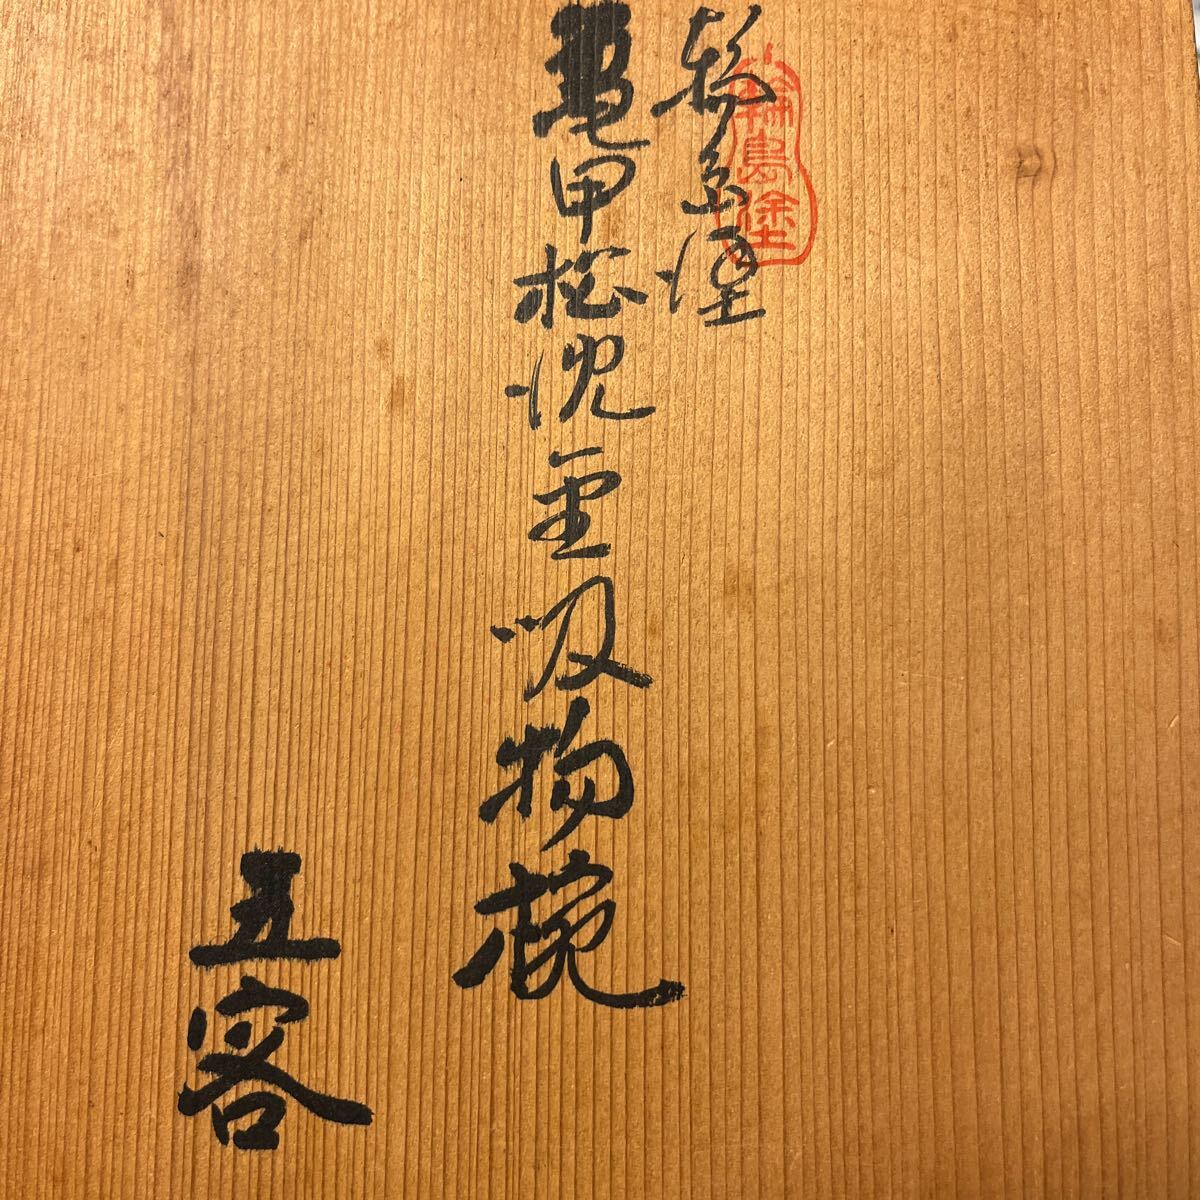 輪島塗
亀甲松沈金吸物椀
五客
輪島塗